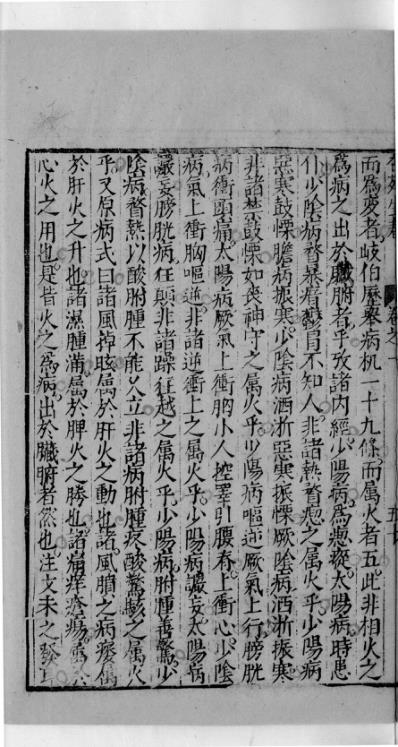 而為變者岐伯歷舉病机一十九條而属火者五此非相火之
為病之出於臟腑者乎攷諸内經少陽病為瘛瘲太陽病時患
仆少陰病瞀暴瘖鬱冒不知人非諸熱瞀瘛之属火乎少陽病
惡寒鼓慄膽病振寒少陰病洒淅惡寒振慄厥陰病洒淅振寒
非諸禁鼓慄如喪神守之属火乎少陽病嘔逆厥氣上行膀胱
病衝頭痛太陽病厥氣上衝胸小人控睪引腰脊上衝心少陰
病氣上衝胸嘔逆非諸逆衝上之属火乎少陽病讝妄太陽病
讝妄膀胱病狂顛非諸躁狂越之属火乎少陽病胕腫善驚少
陰病瞀熱以酸胕腫不能久立非諸病胕腫疼酸驚駭之属火
乎又原病式曰諸風掉眩属於肝火之動也諸風膹之病痿属
於肝火之升也諸濕腫滿属於脾火之勝也諸痛痒瘡瘍属於
心火之用也是皆火之為病出於臟腑者然也注文未之發